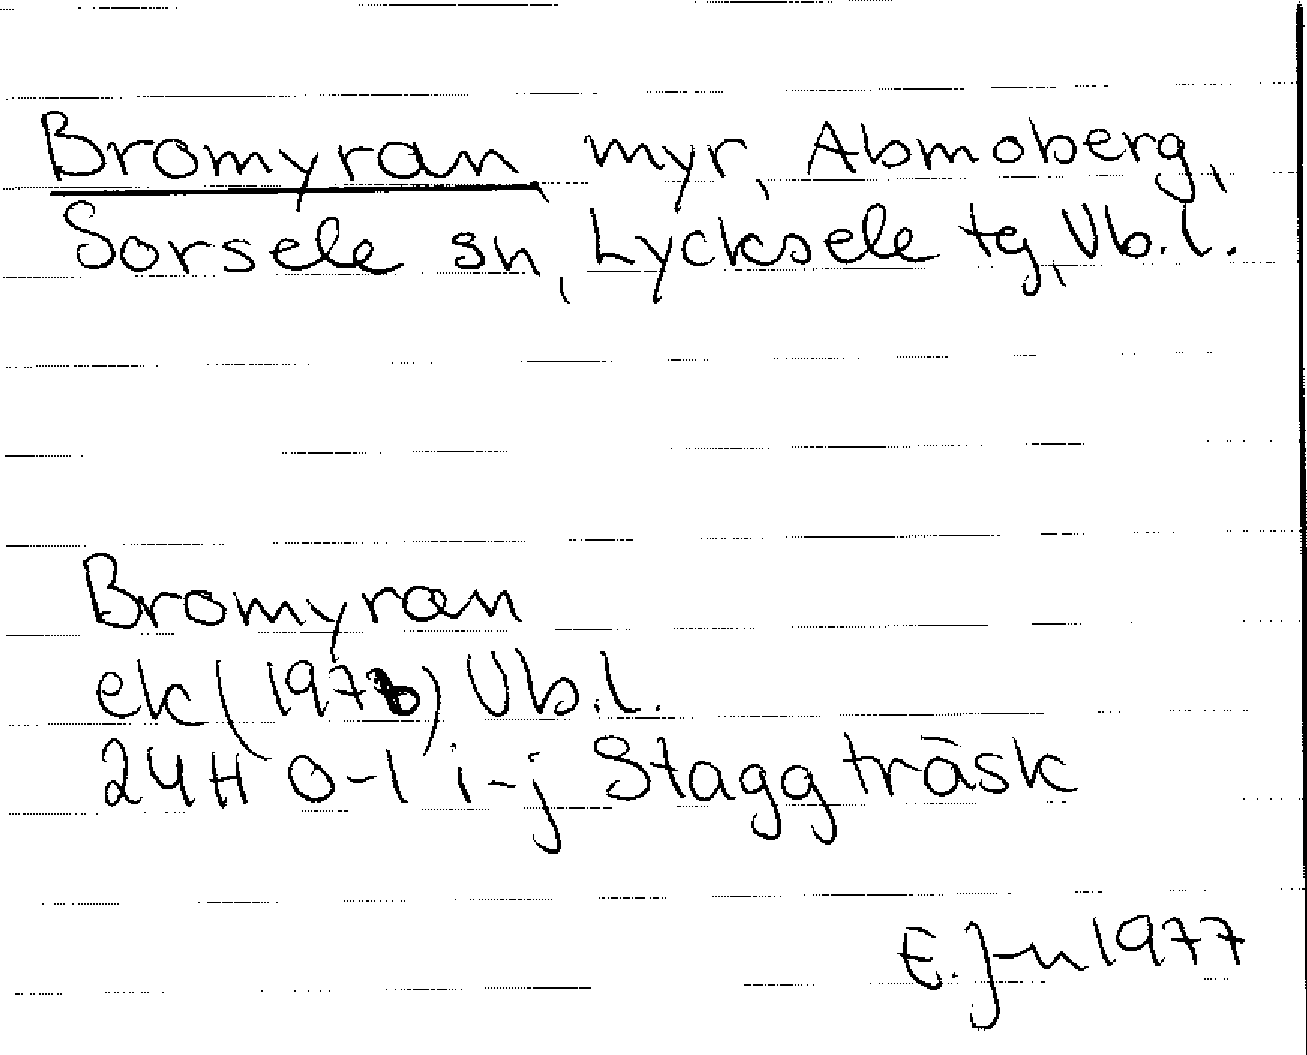 Bromyran, myr, Abmoberg,
Sorsele sn, Lycksele tg, Vb.l.
Bromyran
ek (1976) Vb.l.
24H 0-1 i-j Staggträsk
E. J-n 1977